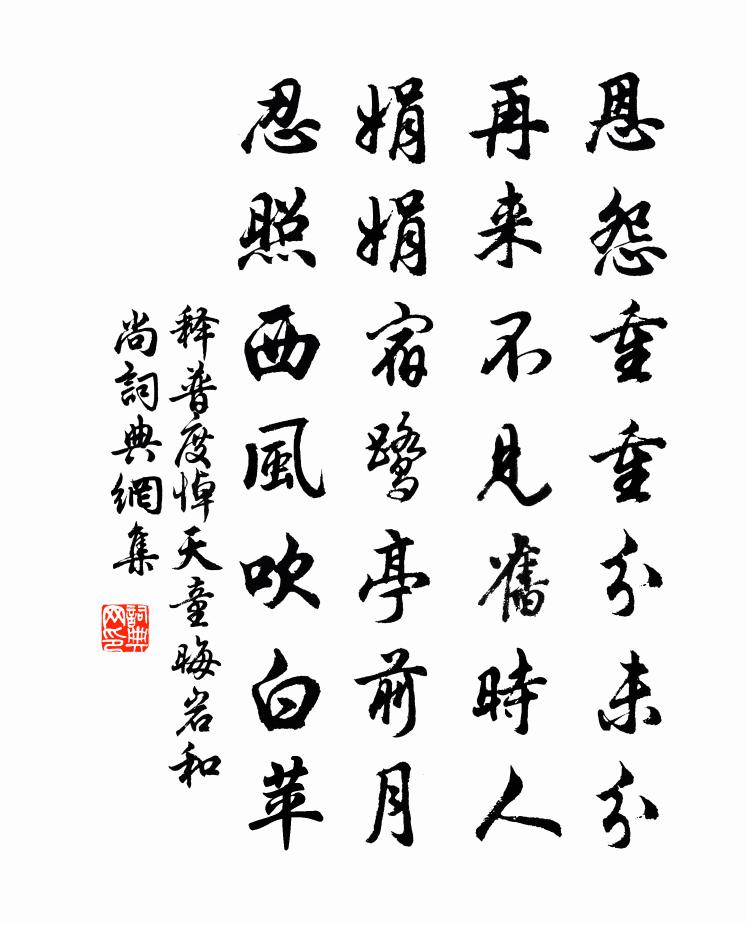 恩怨重重分未分
再来不见舊時人
娟娟宿鷺亭前月
忍照西風吹白苹
释普度悼天童晦岩和
尚詞典網集
詞典
网印